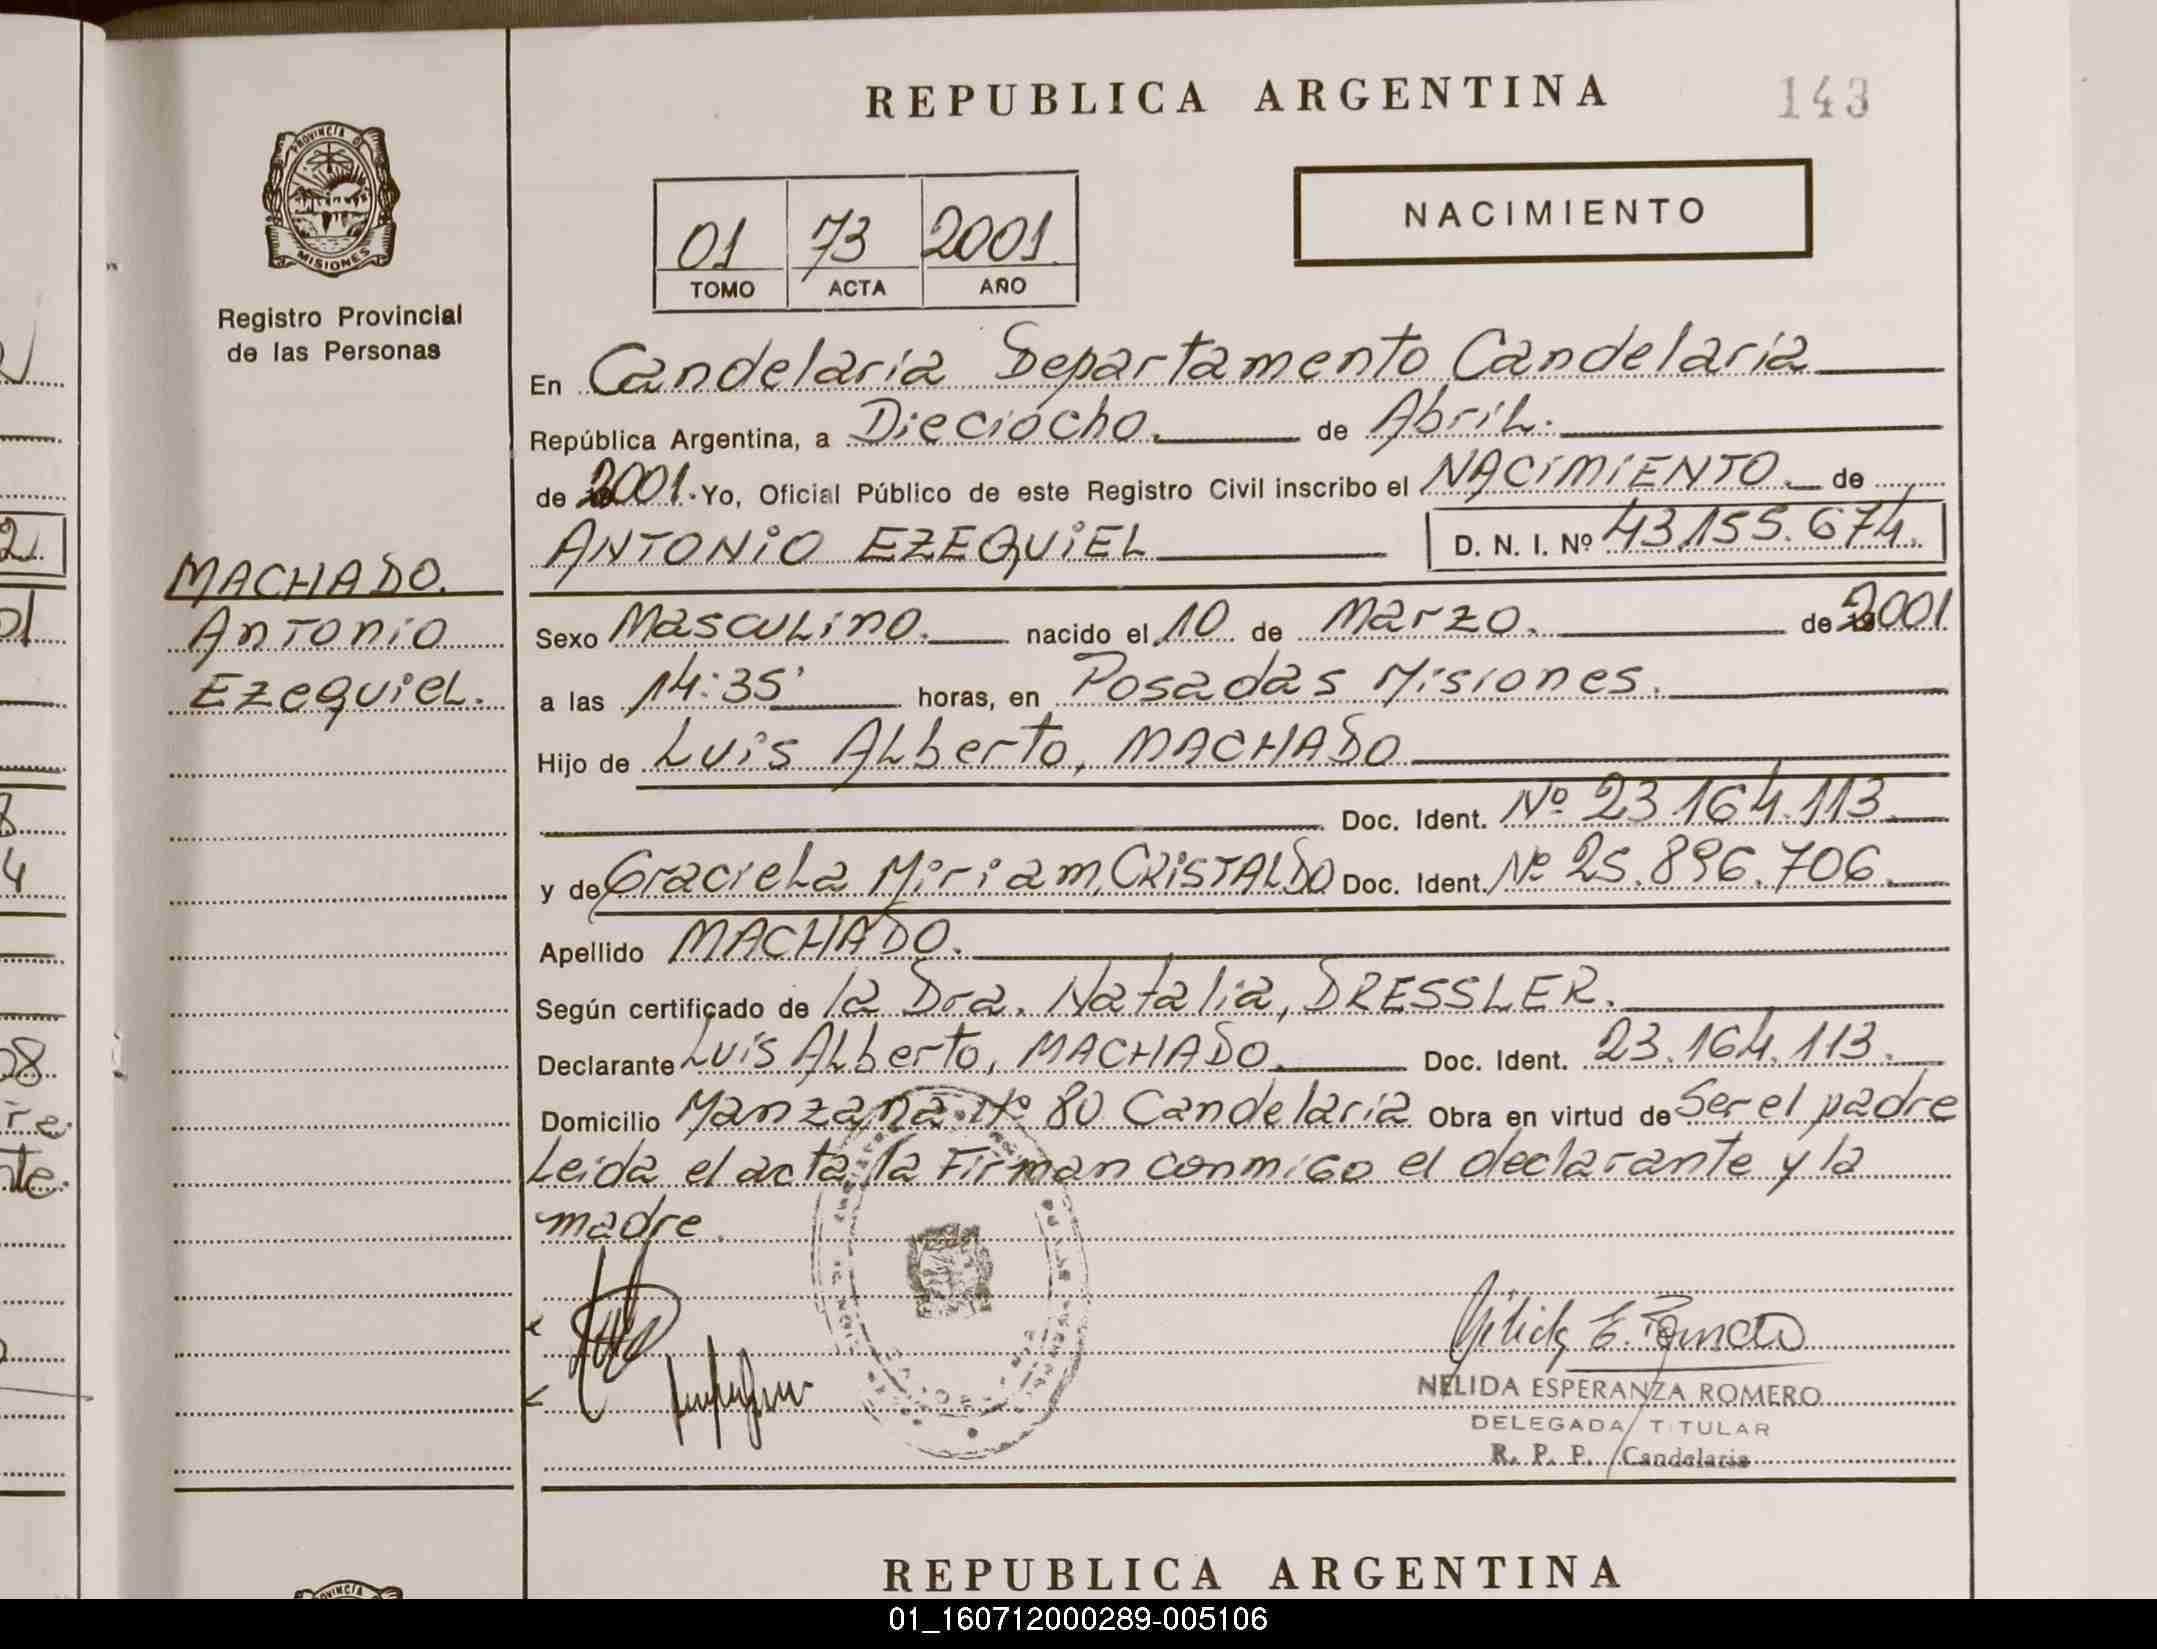 REPUBLICA ARGENTINA
143
PROVINCIA DE
MISIONES
Registro Provincial
de las Personas
NACIMIENTO
01 73 2001
TOMO ACTA AÑO
En Candelaria Departamento Candelaria
República Argentina, a Dieciocho. de Abril.
de 2001. Yo, Oficial Público de este Registro Civil inscribo el NACIMIENTO. de
ANTONIO EZEQUIEL D. N. I. Nº 43.155.674.
MACHADO.
Antonio
Ezequiel.
Sexo Masculino. nacido el 10 de Marzo. de 2001
a las 14:35' horas, en Posadas Misiones.
Hijo de Luis Alberto, MACHADO
Doc. Ident. Nº 23.164.113.
y de Graciela Miriam, CRISTALDO Doc. Ident. Nº 25.896.706.
Apellido MACHADO.
Según certificado de la Dra. Natalia, DRESSLER.
Declarante Luis Alberto, MACHADO. Doc. Ident. 23.164.113.
Domicilio Manzana Nº 80 Candelaria Obra en virtud de Ser el padre
Leida el acta la Firman conmigo el declarante y la
madre.
NELIDA ESPERANZA ROMERO
DELEGADA TITULAR
R. P. P. Candelaria
REPUBLICA ARGENTINA
01_160712000289-005106